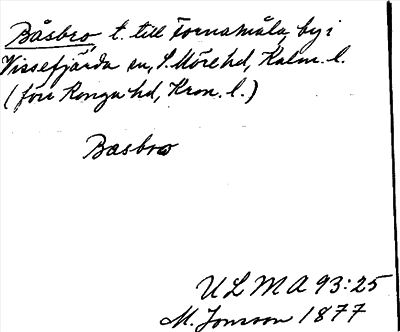 Båsbro, t. till Tornamåla, by i
Vissefjärda sn, S. Möre hd, Kalm. l.
(förr Konga hd, Kron. l.)
Basbro
ULMA 93:25
M. Jonsson 1877